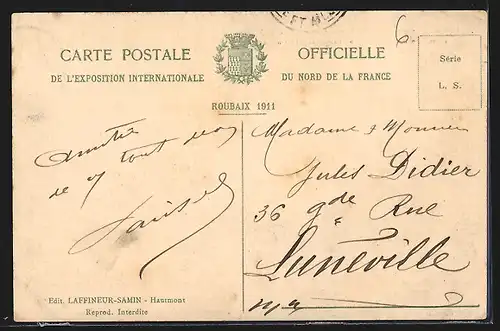 CARTE POSTALE OFFICIELLE
DE L'EXPOSITION INTERNATIONALE DU NORD DE LA FRANCE
ROUBAIX 1911
6
Série
L. S.
Amitiés
de tout
Madame & Monsieur
Jules Didier
36 gde Rue
Lunéville
Edit. LAFFINEUR-SAMIN - Hautmont
Reprod. Interdite